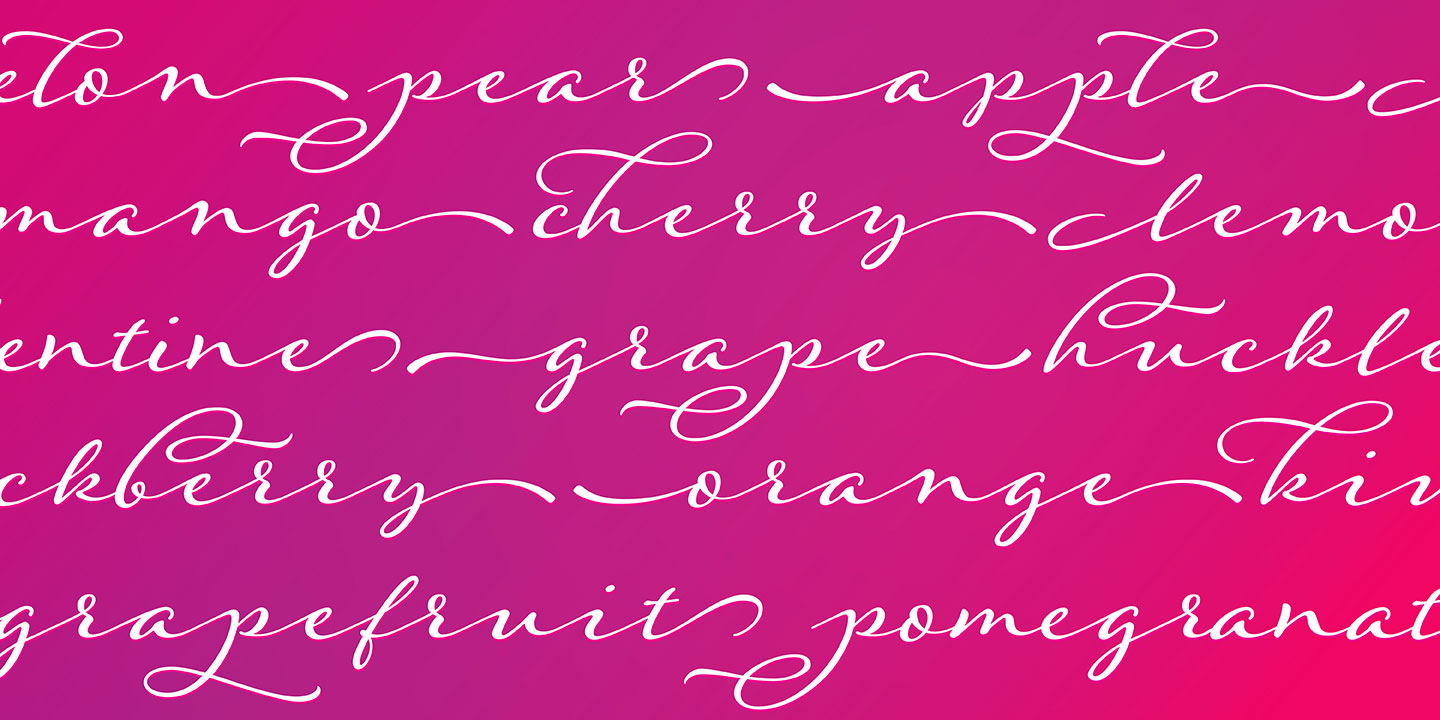 elon pear apple
mango cherry lemo
entine grape huckle
ckberry orange kiw
grapefruit pomegranat